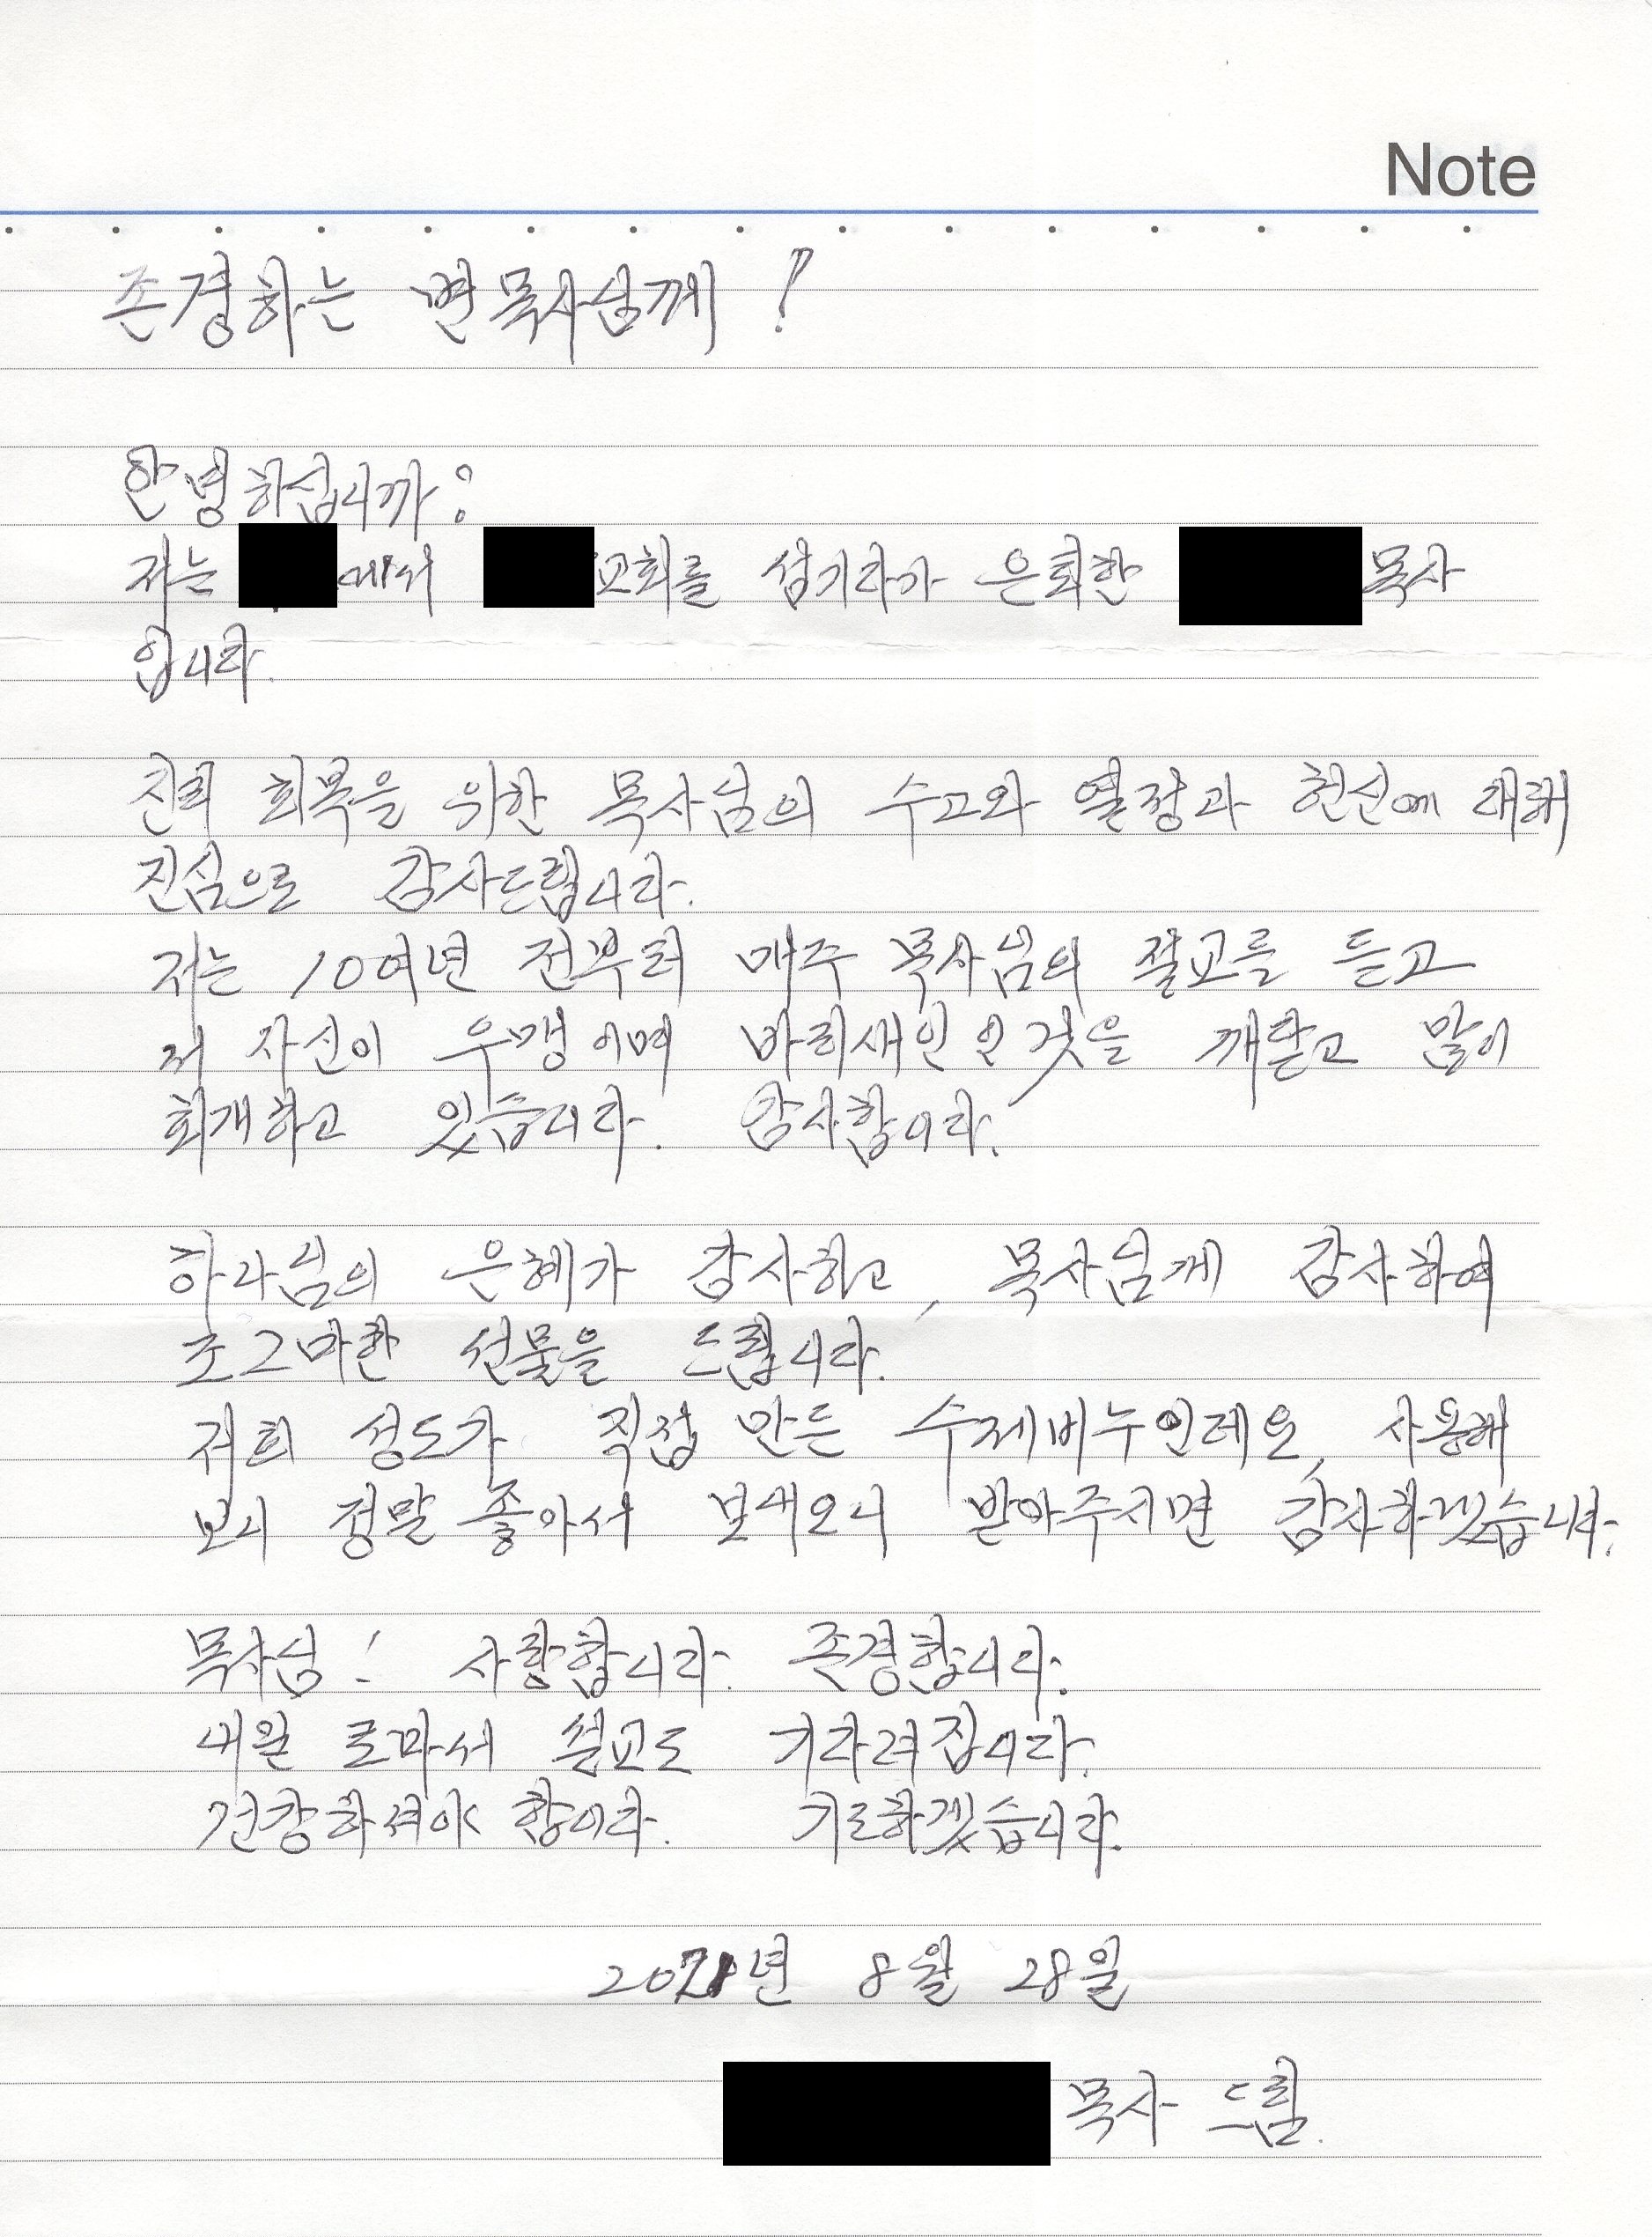 Note
존경하는 변목사님께!
안녕하십니까?
저는 에서 교회를 섬기다가 은퇴한 목사
입니다.
진리 회복을 위한 목사님의 수고와 열정과 헌신에 대해
진심으로 감사드립니다.
저는 10여년 전부터 매주 목사님의 설교를 듣고
저 자신이 우맹이며 바리새인인 것을 깨닫고 많이
회개하고 있습니다. 감사합니다.
하나님의 은혜가 감사하고, 목사님께 감사하여
조그마한 선물을 드립니다.
저희 성도가 직접 만든 수제비누인데요, 사용해
보니 정말 좋아서 보내오니 받아주시면 감사하겠습니다.
목사님! 사랑합니다. 존경합니다.
내일 로마서 설교도 기다려집니다.
건강하셔야 합니다. 기도하겠습니다.
2021년 8월 28일
목사 드림.